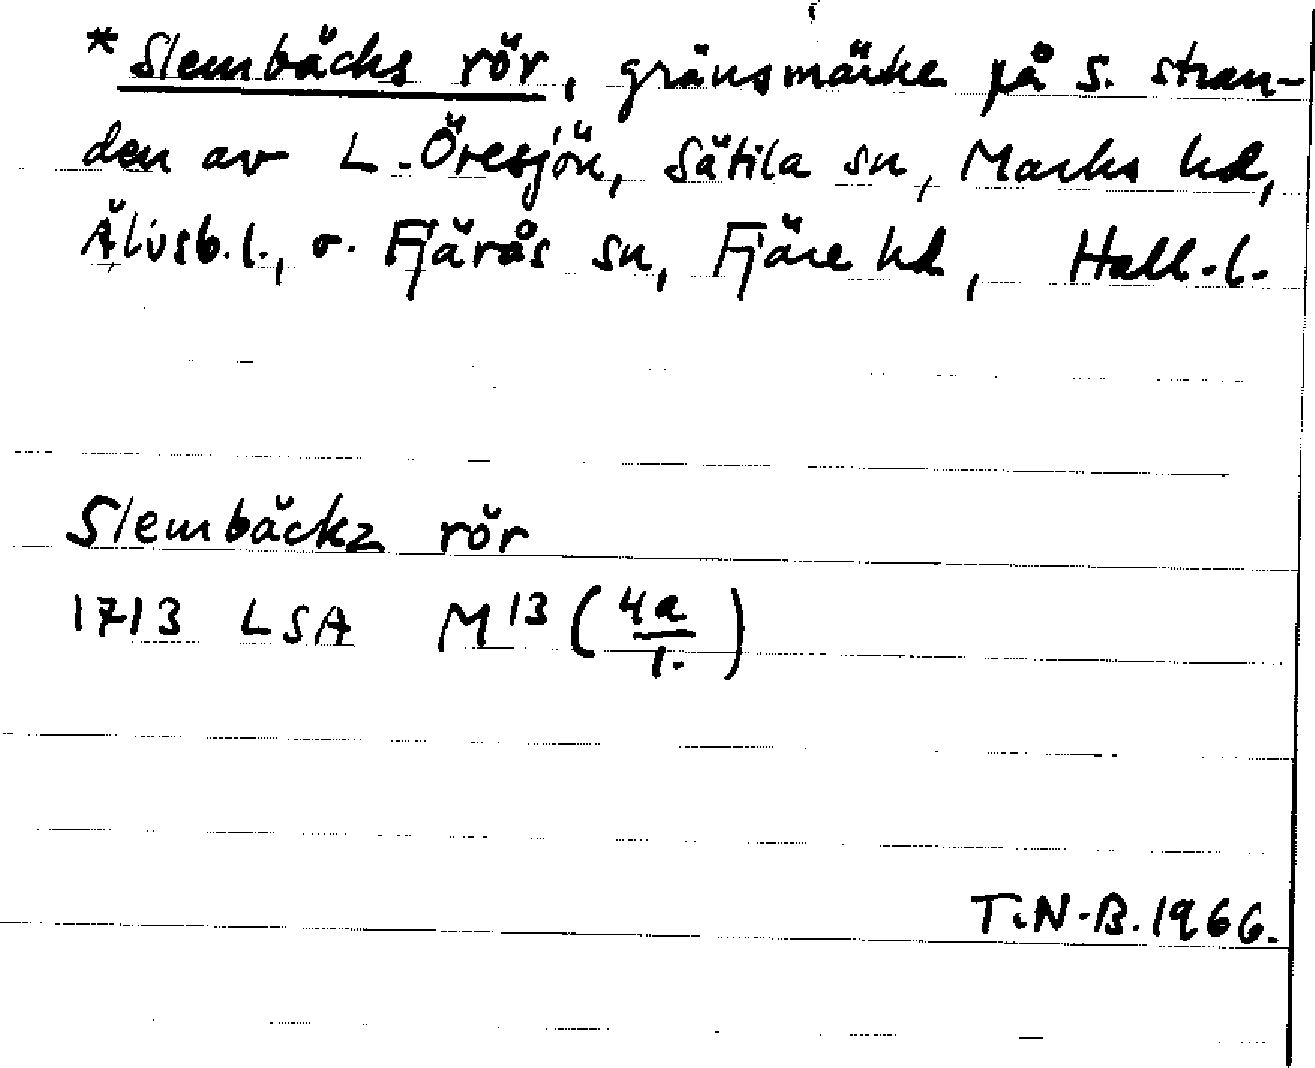 *Slembäcks rör, gränsmärke på S. stran-
den av L. Öresjön, Sätila sn, Marks hd,
Älvsb.l., o. Fjärås sn, Fjäre hd, Hall.l.
Slembäckz rör
1713 LSA M13 (4a/1.)
T.N-B.1966.